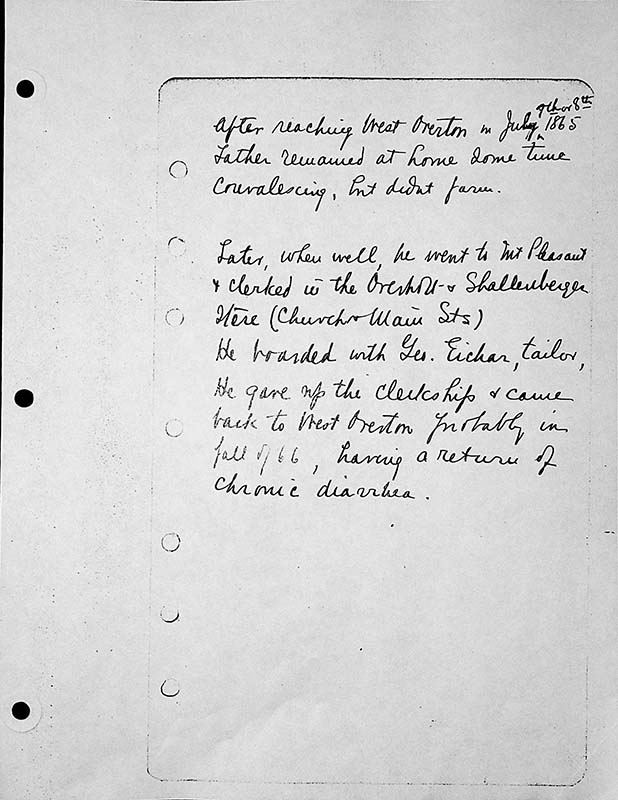 After reaching West Overton in July 7th or 8th 1865
Father remained at home some time
convalescing, but didnt farm.
Later, when well, he went to Mt Pleasant
& clerked in the Overholt & Shallenberger
Store (Church & Main Sts)
He boarded with Geo. Eichar, tailor,
He gave up the clerkship & came
back to West Overton probably in
fall of 66, having a return of
chronic diarrhea.